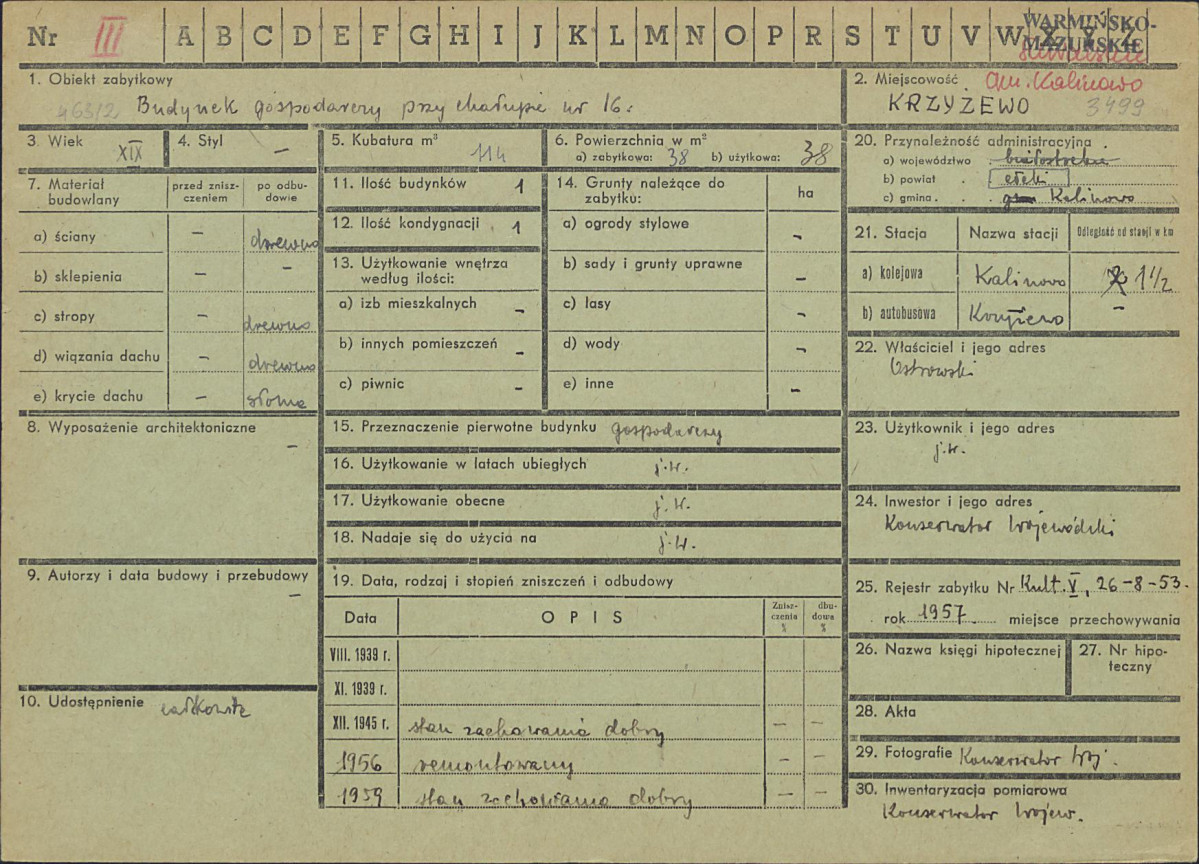 Nr III A B C D E F G H I J K L M N O P R S T U V W X Y Z
WARMIŃSKO-
MAZURSKIE
1. Obiekt zabytkowy
463/2 Budynek gospodarczy przy chałupie nr 16.
2. Miejscowość gm. Kalinowo
KRZYŻEWO 3499
3. Wiek XIX
4. Styl —
5. Kubatura m³ 114
6. Powierzchnia w m²
a) zabytkowa: 38 b) użytkowa: 38
7. Materiał budowlany
przed zniszczeniem
po odbudowie
a) ściany — drewno
b) sklepienia — —
c) stropy — drewno
d) wiązania dachu — drewno
e) krycie dachu — słoma
8. Wyposażenie architektoniczne
—
9. Autorzy i data budowy i przebudowy
—
10. Udostępnienie całkowite
11. Ilość budynków 1
12. Ilość kondygnacji 1
13. Użytkowanie wnętrza
według ilości:
a) izb mieszkalnych —
b) innych pomieszczeń —
c) piwnic —
14. Grunty należące do
zabytku:
ha
a) ogrody stylowe —
b) sady i grunty uprawne —
c) lasy —
d) wody —
e) inne —
15. Przeznaczenie pierwotne budynku gospodarczy
16. Użytkowanie w latach ubiegłych j.w.
17. Użytkowanie obecne j.w.
18. Nadaje się do użycia na j.w.
19. Data, rodzaj i stopień zniszczeń i odbudowy
Data O P I S Zniszczenia % dbudowa %
VIII. 1939 r.
XI. 1939 r.
XII. 1945 r. stan zachowania dobry — —
1956 remontowany — —
1959 stan zachowania dobry — —
20. Przynależność administracyjna
a) województwo białostockie
b) powiat ełcki
c) gmina Kalinowo
21. Stacja Nazwa stacji Odległość od stacji w km
a) kolejowa Kalinowo 1½
b) autobusowa Krzyżewo —
22. Właściciel i jego adres
Ostrowski
23. Użytkownik i jego adres
j.w.
24. Inwestor i jego adres
Konserwator Wojewódzki
25. Rejestr zabytku Nr Kult. V, 26-8-53.
rok 1957 miejsce przechowywania
26. Nazwa księgi hipotecznej
27. Nr hipo-
teczny
28. Akta
29. Fotografie Konserwator Woj.
30. Inwentaryzacja pomiarowa
Konserwator Wojew.